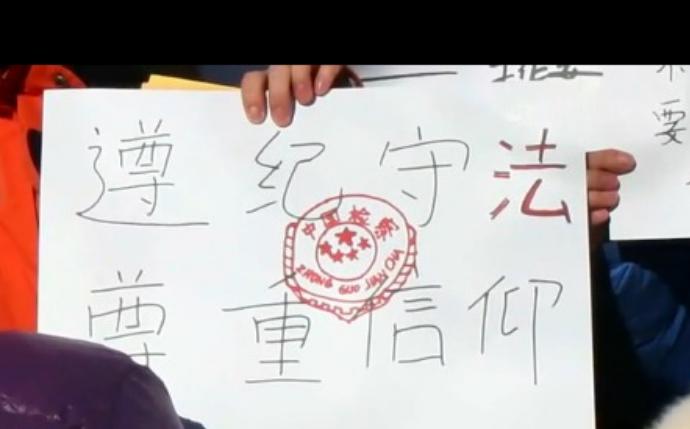 遵纪守法
中国检察
ZHONG GUO JIAN CHA
尊重信仰
要